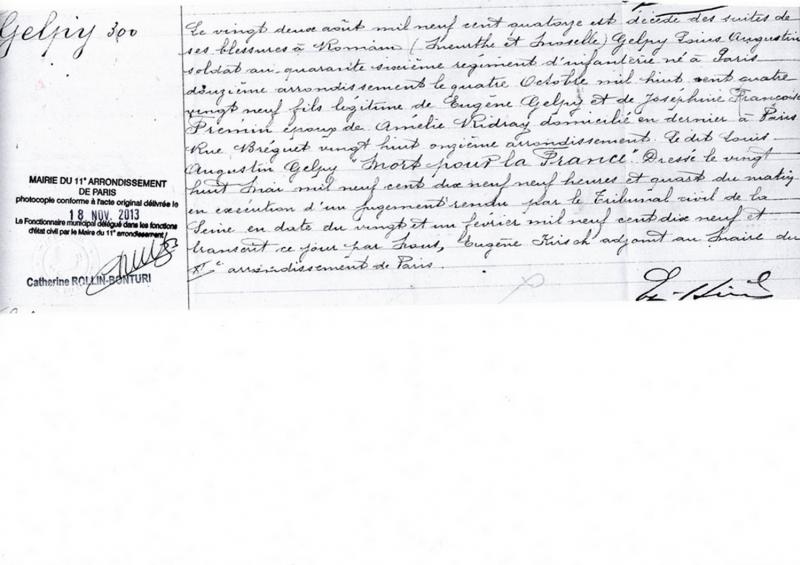 Gelpy 300
Le vingt deux août mil neuf cent quatorze est décédé des suites de
ses blessures à Romain (Meurthe et Moselle) Gelpy Louis Augustin
soldat au quarante sixième régiment d'infanterie né à Paris
douzième arrondissement le quatre Octobre mil huit cent quatre
vingt neuf fils légitime de Eugène Gelpy et de Joséphine Françoise
Premin époux de Amélie Midray domicilié en dernier à Paris
Rue Bréguet vingt huit onzième arrondissement. Le dit Louis
Augustin Gelpy "Mort pour la France". Dressé le vingt
huit Mai mil neuf cent dix neuf neuf heures et quart du matin
en exécution d'un jugement rendu par le Tribunal civil de la
Seine en date du vingt et un février mil neuf cent dix neuf et
transcrit ce jour par Nous, Eugène Kirsch adjoint au Maire du
XIe arrondissement de Paris.
MAIRIE DU 11e ARRONDISSEMENT
DE PARIS
photocopie conforme à l'acte original délivrée le
18 NOV. 2013
Le Fonctionnaire municipal délégué dans les fonctions
d'état civil par le Maire du 11e arrondissement
Catherine ROLLIN-BONTURI